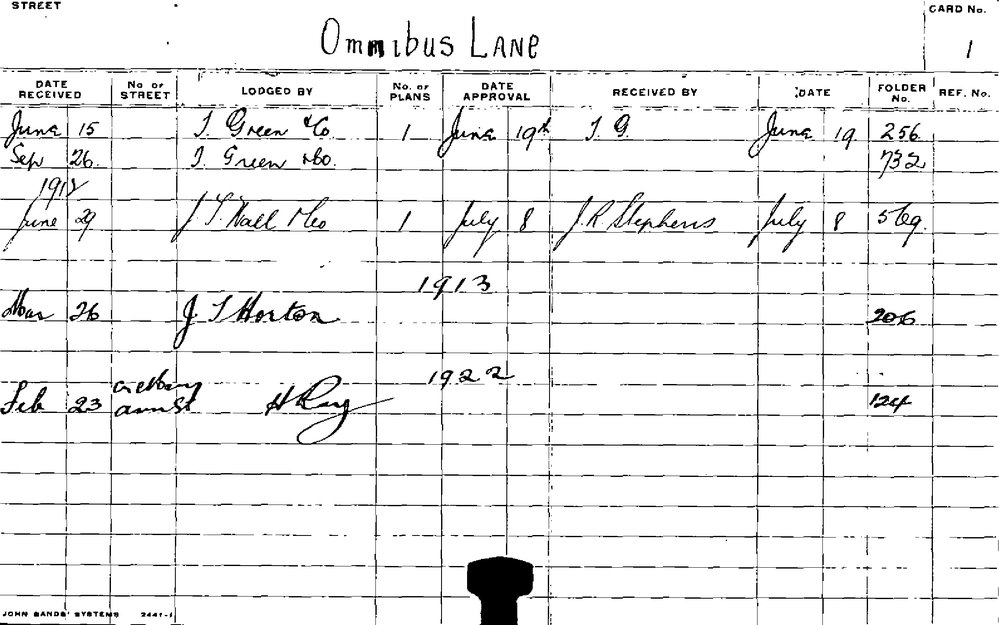 STREET
CARD No.
Omnibus Lane
1
DATE RECEIVED No of STREET LODGED BY No. of PLANS DATE APPROVAL RECEIVED BY DATE FOLDER No. REF. No.
June 15 T. Green & Co. 1 June 19th T. G June 19 256
Sep 26. T. Green & Co. 732
1912
June 29 J T Wall & Co 1 July 8 J. R Stephens July 8 569.
1913
Mar 26 J. T Horton 206
1922
Feb 23 Ann St H Ray 124
JOHN SANDS' SYSTEMS 2441-1